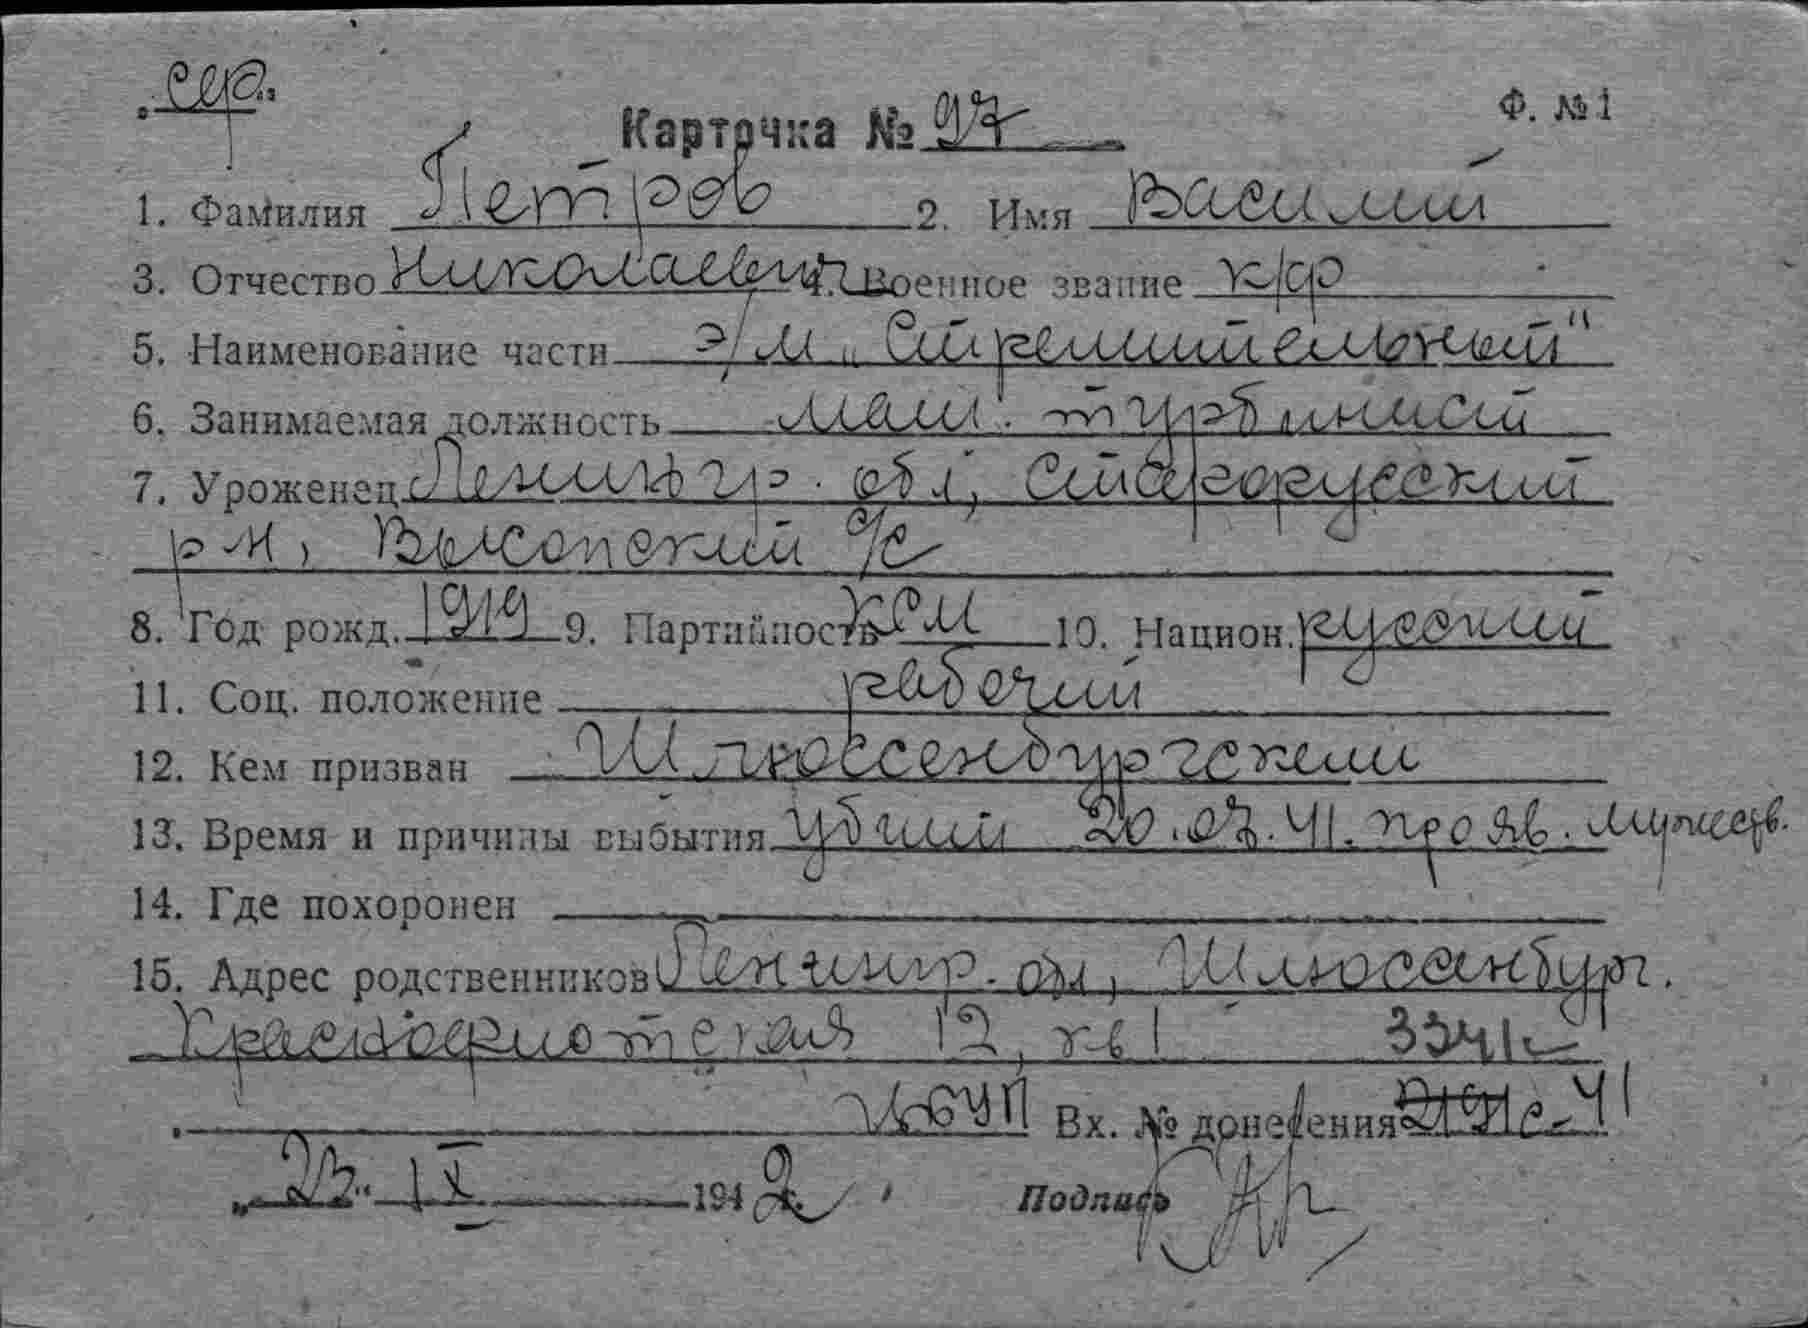 сер.
Ф. № 1
Карточка № 97
1. Фамилия Петров 2. Имя Василий
3. Отчество Николаевич 4. Военное звание к/ф
5. Наименование части э/м „Стремительный"
6. Занимаемая должность маш. турбинист
7. Уроженец Ленингр. обл, Старорусский
р-н, Высопский с/с
8. Год рожд. 1919 9. Партийность КСМ 10. Национ. русский
11. Соц. положение рабочий
12. Кем призван Шлюссенбургским
13. Время и причины выбытия убит 20.07.41. прояв. мужеств.
14. Где похоронен
15. Адрес родственников Ленингр. обл, Шлюссенбург.
Краснофлотская 12, кв 1 3341с
Вх. № донесения 41
„23" IX 1942
Подпись